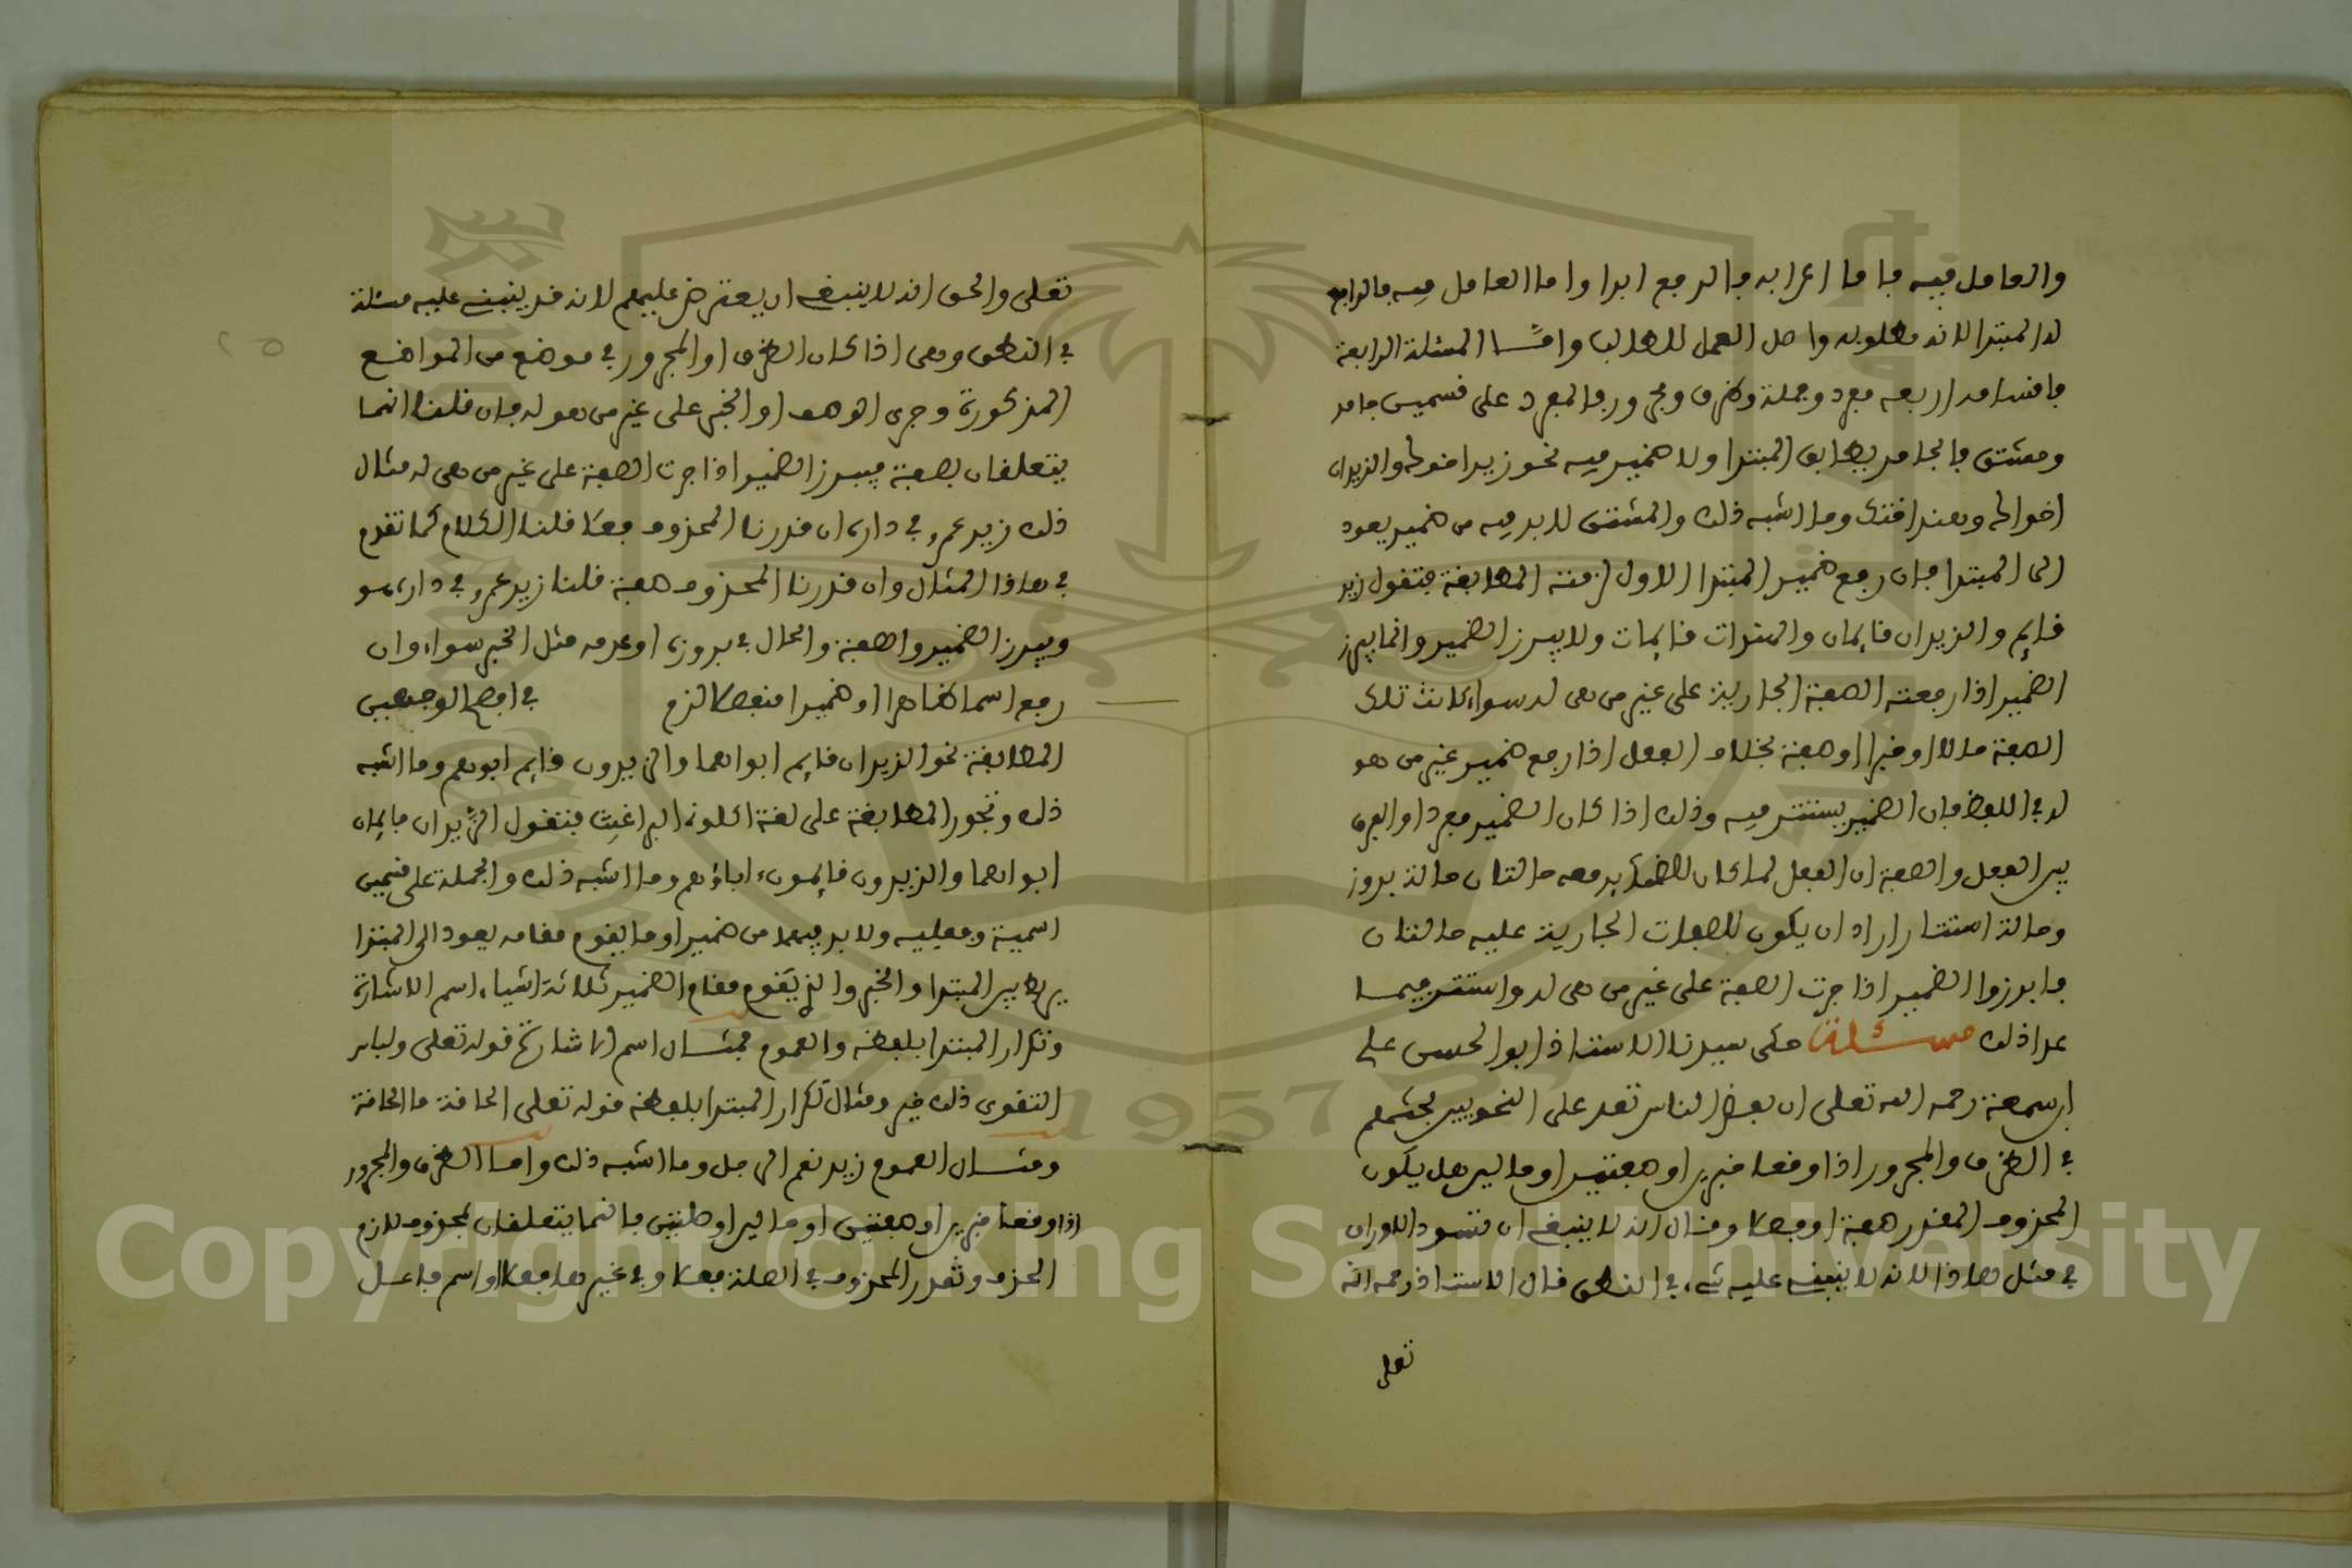 والعامل فيه فاما اعرابه فالرفع ابدا واما العامل فيه فالرافع
له المبتدا لانه مطلوبه واصل العمل للطالب وامّا المسئلة الرابعة
فاقسامه اربعه مفرد وجملة وظرف ومجرور فالمفرد على قسمين جامد
ومشتق فالجامد يطابق المبتدا ولا ضمير فيه نحو زيد اخوك والزيدان
اخواك وهند اختك وما اشبه ذلك والمشتق لا بد فيه من ضمير يعود
الى المبتدا فان رفع ضمير المبتدا الاول لزمته المطابقة فتقول زيد
قايم والزيدان قايمان والهندات قايمات ولا يبرز الضمير وانما يبرز
الضمير اذا رفعته الصفة الجارية على غير من هى له سواء كانت تلك
الصفة حالا او خبرا او صفة بخلاف الفعل اذا رفع ضمير غير من هو
له في اللفظ فان الضمير يستتر فيه وذلك اذا كان الضمير مفردا والفرق
بين الفعل والصفة ان الفعل لما كان للضماير معه حالتان حالة بروز
وحالة استتار اراد ان يكون للصفات الجارية عليه حالتان
فابرزوا الضمير اذا جرت الصفة على غير من هى له واستتر فيمـا
عدا ذلك مسـئلة حكى سيدنا الاستاذ ابو الحسن على
ابن سمعة رحمه الله تعلى ان بعض الناس تعد على النحويين بحثهم
في الظرف والمجرور اذا وقعا خبرين او صفتين او حالين هل يكون
المحذوف المقدر صفة او فعلا وقال انه لا ينبغى ان تسود الاوراق
في مثل هاذا لانه لا ينبنى عليه شىء في النطق قال الاستاذ رحمه الله
تعلى
تعلى والحق انه لا ينبغى ان يعترض عليهم لانه قد ينبنى عليه مسئلة
في النطق وهى اذا كان الظرف او المجرور في موضع من المواضع
المذكورة وجرى الوصف او الخبر على غير من هو له فان قلنا انهما
يتعلقان بصفة فيبرز الضمير اذا جرت الصفة على غير من هى له مثال
ذلك زيد عمرو في داره ان قدرنا المحذوف فعلا قلنا الكلام كما تقدم
في هاذا المثال وان قدرنا المحذوف صفة قلنا زيد عمرو في داره هو
ويبرز الضمير والصفة والحال في بروزه او عدمه مثل الخبر سواء وان
رفع اسما ظاهرا او ضميرا منفصلا لزم في افصح الوجهين
المطابقة نحو الزيدان قايم ابواهما والزيدون قايم ابوهم وما اشبه
ذلك وتجوز المطابقة على لغة اكلونى البراغيث فتقول الزيدان قايمان
ابواهما والزيدون قايمون اباؤهم وما اشبه ذلك والجملة على قسمين
اسمية وفعليه ولا بد فيهما من ضمير او ما يقوم مقامه يعود الى المبتدا
يربط بين المبتدا والخبر والذى يقوم مقام الضمير ثلاثة اشياء اسم الاشارة
وتكرار المبتدا بلفظه والعموم فمثـال اسم الاشارة قوله تعلى ولباس
التقوى ذلك خير ومثال تكرار المبتدا بلفظه قوله تعلى الحاقة ما الحاقة
ومثـال العموم زيد نعم الرجل وما اشبه ذلك وامـا الظرف والمجرور
اذا وقعا خبرين او صفتين او حالين او صلتين فانهما يتعلقان بمحذوف لازم
الحذف وتقدر المحذوف في الصلة فعلا وفي غيرها فعلا او اسم فاعـل